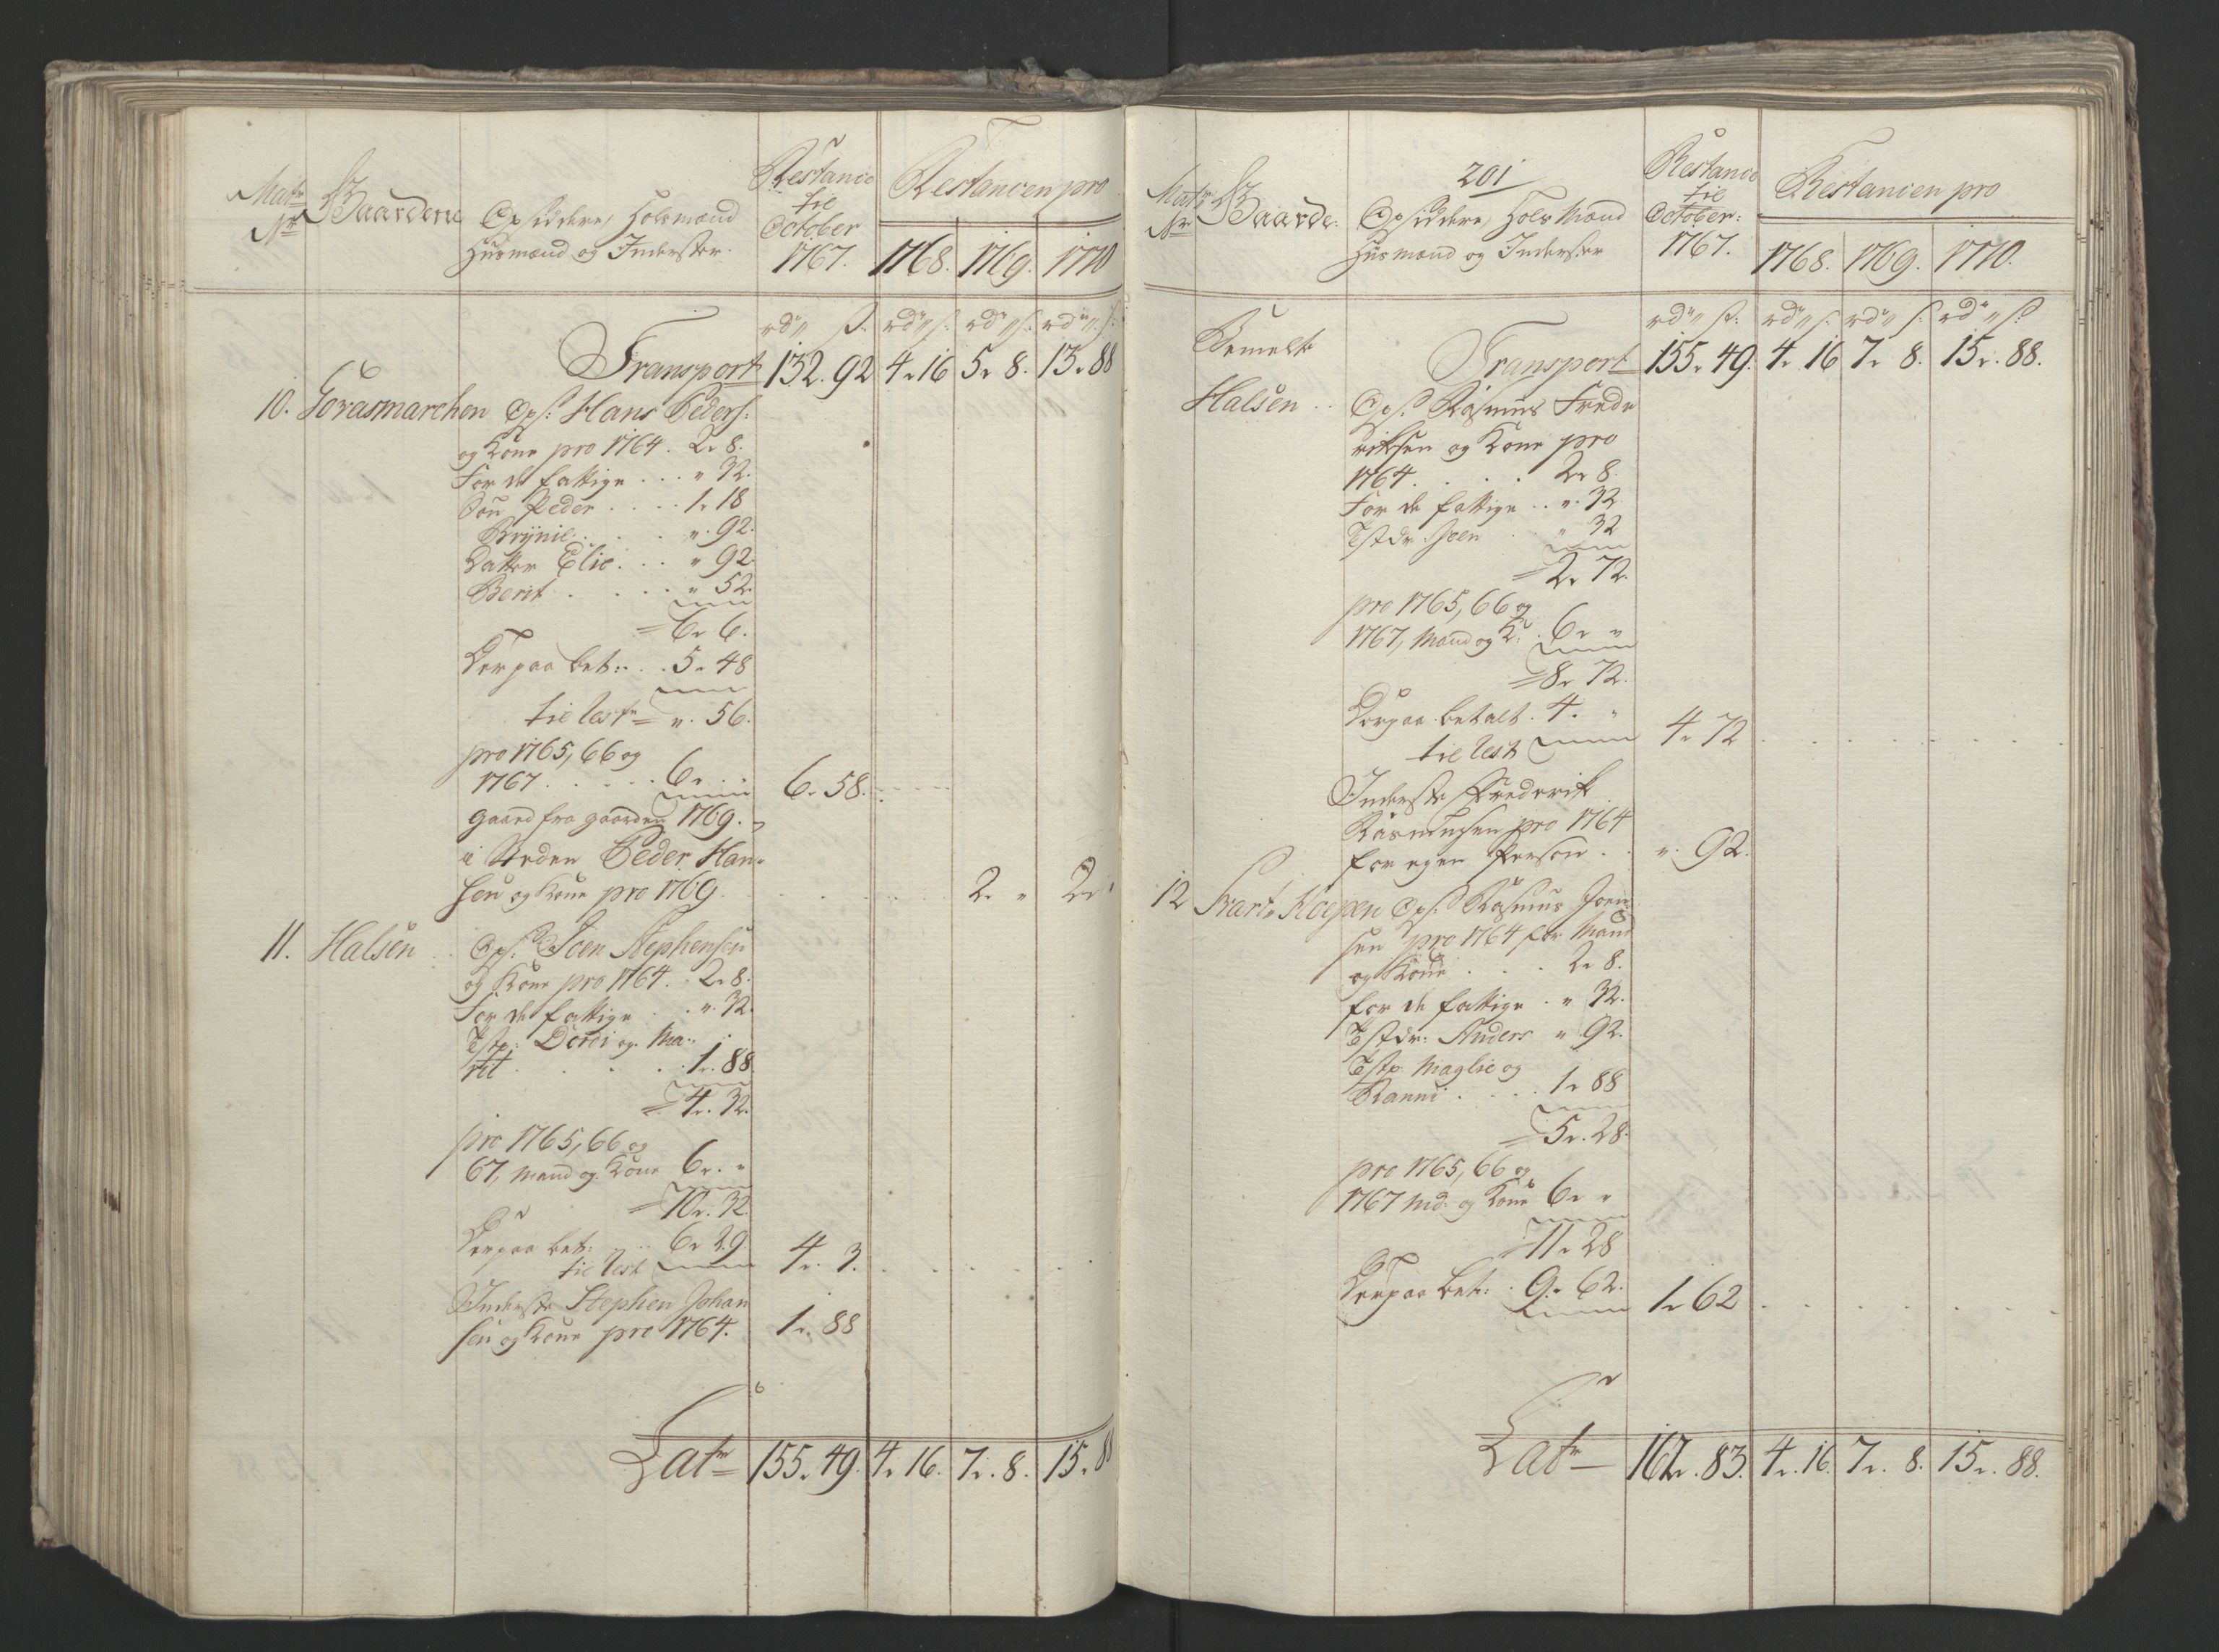 Matr
Nr
Gaardene
Opsiddere, Holsmænd
Huusmænd og Inderster.
Restance
til
October
1767.
Restancen pro
1768. 1769. 1770
rdr ß. rdr ß. rdr ß. rdr ß.
Transport 132. 92 4. 16 5. 8. 13. 88
10. Gorasmarchen Ops: Hans Peders:
og Kone pro 1764. 2. 8.
For de fattige . . . " 32.
Søn Peder . . . . 1. 18
Brynil . . . . ". 92.
Datter Elie . . . " 92.
Berit . . . . . " 52.
= 6. 6.
Derpaa bet: . . 5. 48
til Rest = ". 56.
pro 1765, 66 og
1767 . . . . . 6. . . 6. 58.
gaaed fra gaarden 1769.
i Steden Peder Han-
sen og Kone pro 1769. . . . . 2. " 2.
11. Halsen . . Ops: Joen Stephensen
og Kone pro 1764. . 2. 8.
For de fattige . . ". 32.
Tstp: Dordi og Ma-
rit . . . . . 1. 88
= 4. 32.
pro 1765, 66 og
67, mand og Kone 6. "
= 10. 32.
Derpaa bet: . . 6. 29.
til Rest 4. 3.
Inderste Stephen Johan
sen og Kone pro 1764. 1. 88
Latr 155. 49. 4. 16. 7. 8. 15. 88
201
Matr
Nr
Gaarde.
Opsiddere, Hols Mænd
Huusmænd og Inderster
Restance
til
October:
1767.
Restancen pro
1768. 1769. 1770.
rdr ß: rdr ß: rdr ß: rdr ß
Bemelte
Transport 155. 49. 4. 16 7. 8. 15. 88.
Halsen . . Ops: Rasmus Frede
riksen og Kone pro
1764. . . . . 2. 8.
For de fattige . . ". 32.
Tstdr: Joen . . " 32
= 2. 72.
pro 1765, 66 og
1767, Mand og K: . 6. "
= 8. 72.
Derpaa betalt. 4. "
til Rest 4. 72
Inderste Frederik
Rasmusen pro 1764
for egen Person . . ". 92.
12 Svart Hoepen Ops: Rasmus Joen-
sen pro 1764 for Mand
og Kone . . . . 2. 8.
for de fattige . " 32.
Tstdr: Anders " 92.
Tstp Maglie og
Ranni . . . . 1. 88
= 5. 28.
pro 1765, 66 og
1767 Md: og Kone 6. "
= 11. 28
Derpaa bet: . 9. 62. 1. 62
Latr 162. 83. 4. 16. 7. 8. 15. 88.